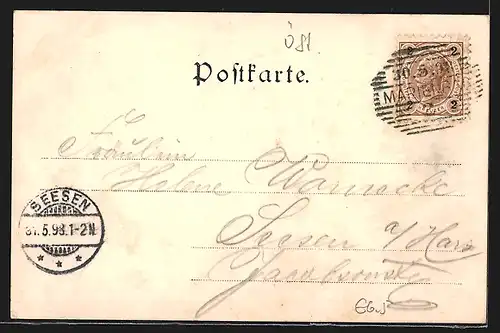 Öst
Postkarte.
2 2
30.5.
MARIEN
2 2
Fräulein
Helene Warnecke
SEESEN
31.5.98.1-2N
* * *
Seesen a/Harz
Jacobsonstr